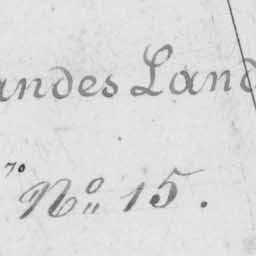 andes Land
70
No 15.